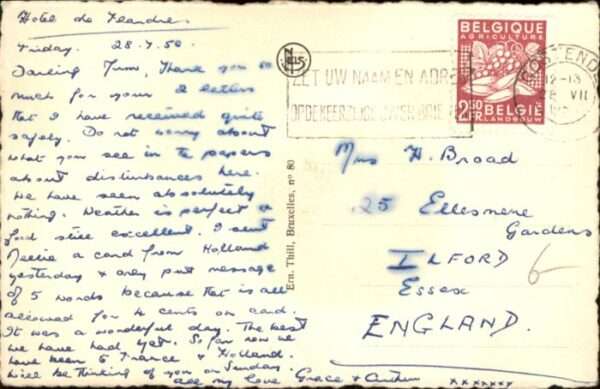 Hotel de Flandres
Friday. 28.7.50
Darling Mums, Thank you so
much for your 2 letters
that I have received quite
safely. Do not worry about
what you see in the papers
about disturbances here.
We have seen absolutely
nothing. Weather is perfect &
food still excellent. I sent
Nellie a card from Holland
yesterday & only put message
of 5 words because that is all
allowed for 4 cents on card.
It was a wonderful day. The best
we have had yet. So far now we
have been to France & Holland.
Will be thinking of you on Sunday.
all my love Grace & Arthur
xxxxxxx
Ern. Thill, Bruxelles, nº 80
ZET UW NAAM EN ADR
OP DE KEERZIJDE
BELGIQUE
AGRICULTURE
2,50
FR
BELGIE
LANDBOUW
OOSTENDE
12-13
28 VII
Mrs H. Broad
25 Ellesmere
Gardens
ILFORD
Essex
ENGLAND.
6